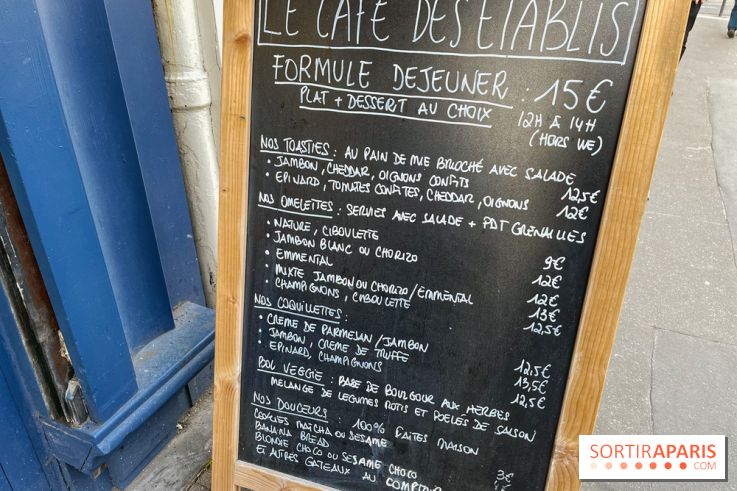 LE CAFÉ DES ETABLIS
FORMULE DEJEUNER : 15€
PLAT + DESSERT AU CHOIX
12H À 14H
(HORS WE)
NOS TOASTIES : AU PAIN DE MIE BRIOCHÉ AVEC SALADE
• JAMBON, CHEDDAR, OIGNONS CONFITS 12,5€
• EPINARD, TOMATES CONFITES, CHEDDAR, OIGNONS 12€
NOS OMELETTES : SERVIES AVEC SALADE + PDT GRENAILLES
• NATURE, CIBOULETTE 9€
• JAMBON BLANC OU CHORIZO 12€
• EMMENTAL 12€
• MIXTE JAMBON OU CHORIZO/EMMENTAL 13€
• CHAMPIGNONS, CIBOULETTE 12,5€
NOS COQUILLETTES :
• CREME DE PARMESAN/JAMBON 12,5€
• JAMBON, CREME DE TRUFFE 13,5€
• EPINARD, CHAMPIGNONS 12,5€
BOL VEGGIE : BASE DE BOULGOUR AUX HERBES
MELANGE DE LEGUMES ROTIS ET POELES DE SAISON
NOS DOUCEURS : 100% FAITES MAISON
COOKIES MATCHA OU SESAME 3€
BANANA BREAD
BLONDIE CHOCO OU SESAME CHOCO
ET AUTRES GATEAUX AU COMPTOIR
SORTIRAPARIS
.COM